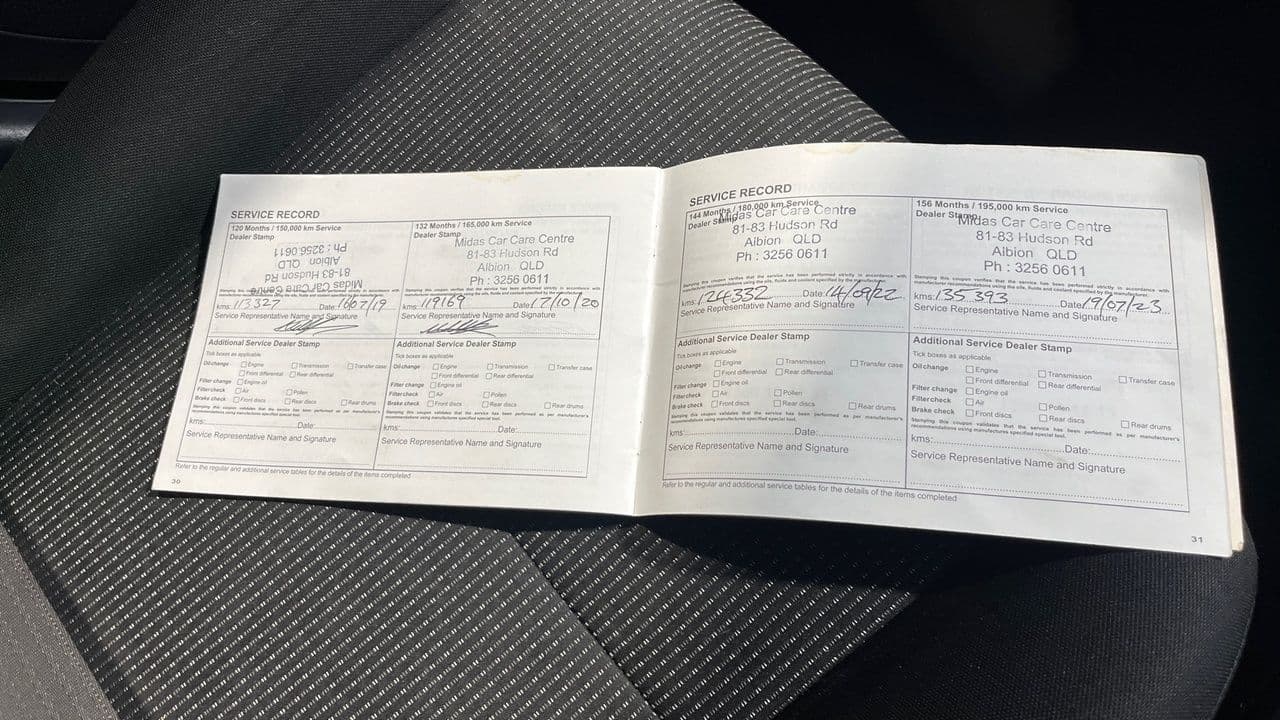 SERVICE RECORD
120 Months / 150,000 km Service
Dealer Stamp
Midas Car Care Centre
81-83 Hudson Rd
Albion QLD
Ph : 3256 0611
Stamping this coupon verifies that the service has been performed strictly in accordance with
manufacturers recommendations using the oils, fluids and coolant specified by the manufacturer.
kms: 113 327 Date:
Service Representative Name and Signature
Additional Service Dealer Stamp
Tick boxes as applicable
Oil change Engine Transmission Transfer case
Front differential Rear differential
Filter change Engine oil
Filter check Air Pollen
Brake check Front discs Rear discs Rear drums
Stamping this coupon validates that the service has been performed as per manufacturer's
recommendations using manufactures specified special tool.
kms: Date:
Service Representative Name and Signature
132 Months / 165,000 km Service
Dealer Stamp
Midas Car Care Centre
81-83 Hudson Rd
Albion QLD
Ph : 3256 0611
Stamping this coupon verifies that the service has been performed strictly in accordance with
manufacturers recommendations using the oils, fluids and coolant specified by the manufacturer.
kms: 119169 Date: 12/10/20
Service Representative Name and Signature
Additional Service Dealer Stamp
Tick boxes as applicable
Oil change Engine Transmission Transfer case
Front differential Rear differential
Filter change Engine oil
Filter check Air Pollen
Brake check Front discs Rear discs Rear drums
Stamping this coupon validates that the service has been performed as per manufacturer's
recommendations using manufactures specified special tool.
kms: Date:
Service Representative Name and Signature
Refer to the regular and additional service tables for the details of the items completed
30
SERVICE RECORD
144 Months / 180,000 km Service
Dealer Stamp
Midas Car Care Centre
81-83 Hudson Rd
Albion QLD
Ph : 3256 0611
Stamping this coupon verifies that the service has been performed strictly in accordance with
manufacturers recommendations using the oils, fluids and coolant specified by the manufacturer.
kms: 124332 Date: 14/09/22
Service Representative Name and Signature
Additional Service Dealer Stamp
Tick boxes as applicable
Oil change Engine Transmission Transfer case
Front differential Rear differential
Filter change Engine oil
Filter check Air Pollen
Brake check Front discs Rear discs Rear drums
Stamping this coupon validates that the service has been performed as per manufacturer's
recommendations using manufactures specified special tool.
kms: Date:
Service Representative Name and Signature
156 Months / 195,000 km Service
Dealer Stamp
Midas Car Care Centre
81-83 Hudson Rd
Albion QLD
Ph : 3256 0611
Stamping this coupon verifies that the service has been performed strictly in accordance with
manufacturers recommendations using the oils, fluids and coolant specified by the manufacturer.
kms: 135 393 Date 19/07/23
Service Representative Name and Signature
Additional Service Dealer Stamp
Tick boxes as applicable
Oil change Engine Transmission Transfer case
Front differential Rear differential
Filter change Engine oil
Filter check Air Pollen
Brake check Front discs Rear discs Rear drums
Stamping this coupon validates that the service has been performed as per manufacturer's
recommendations using manufactures specified special tool.
kms: Date:
Service Representative Name and Signature
Refer to the regular and additional service tables for the details of the items completed
31